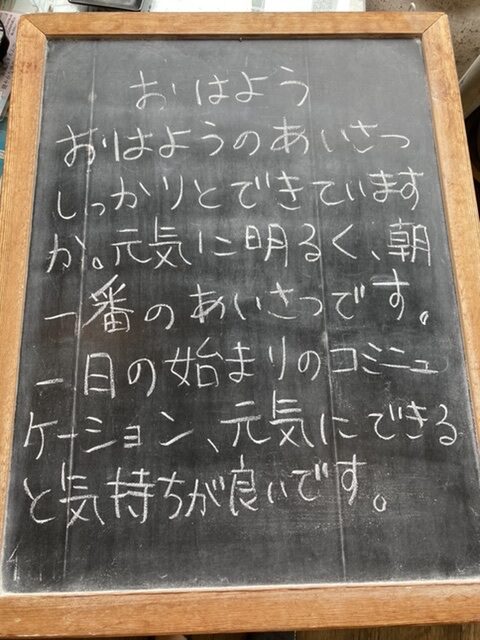 おはよう
おはようのあいさつ
しっかりとできています
か。元気に明るく、朝
一番のあいさつです。
一日の始まりのコミニュ
ケーション、元気にできる
と気持ちが良いです。